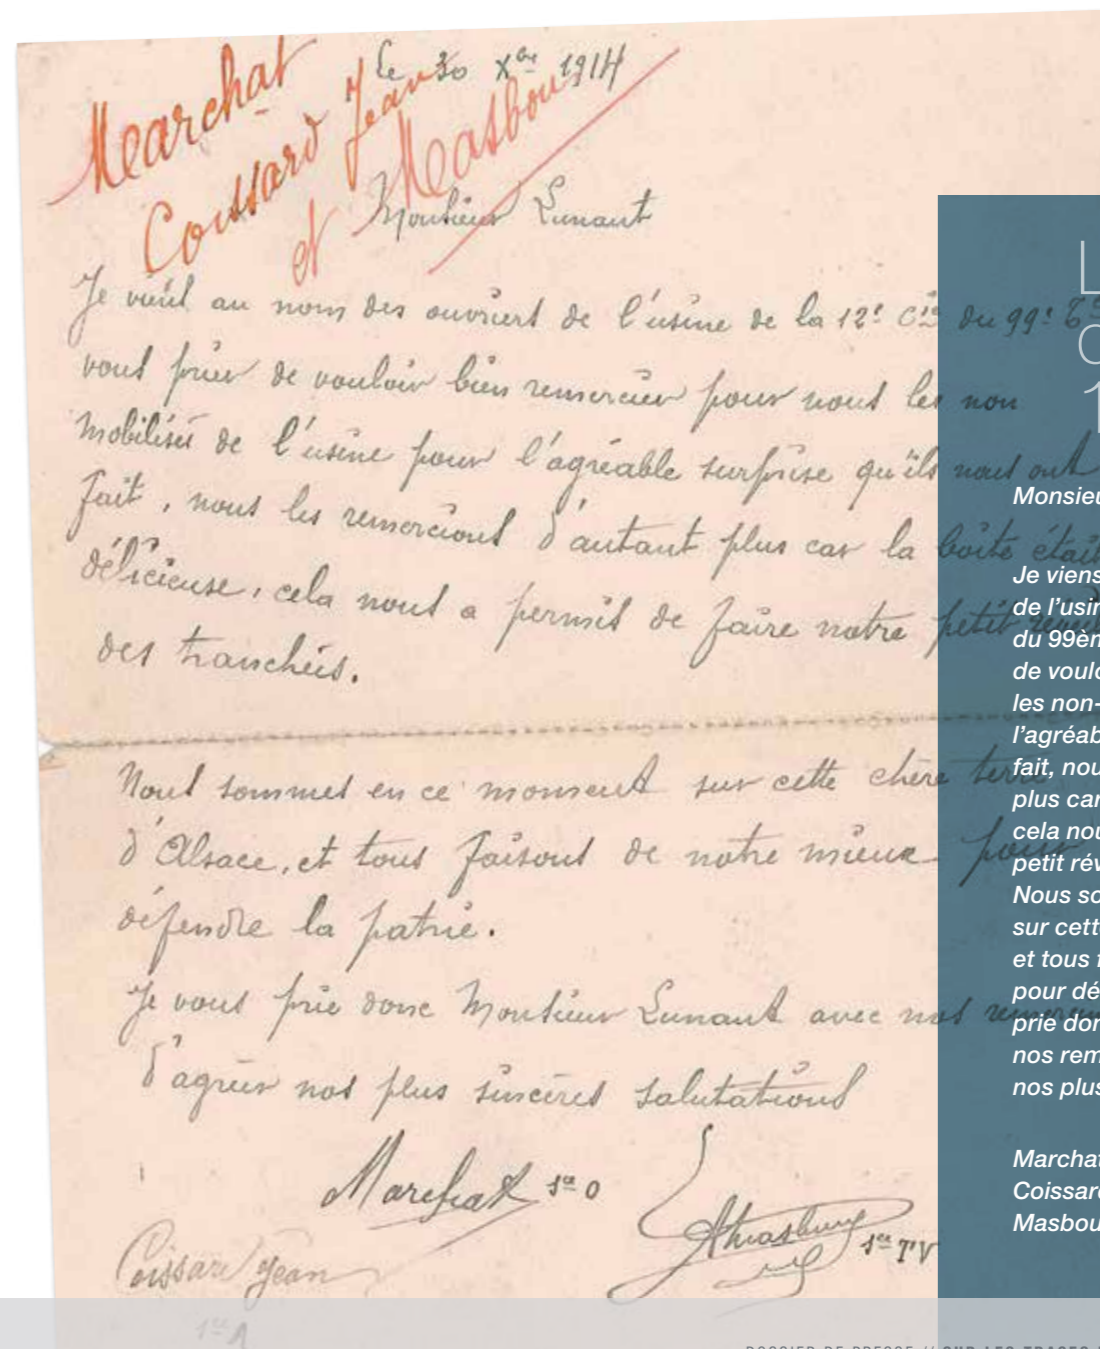 Marchat
Coissard Jean
et Masbou
Le 30 Xbre 1914
Monsieur Lunant
Je viens au nom des ouvriers de l'usine de la 12e Cie du 99e
vous prier de vouloir bien remercier pour nous les non
mobilisés de l'usine pour l'agréable surprise qu'ils nous ont
fait, nous les remercions d'autant plus car la boîte était
délicieuse, cela nous a permis de faire notre petit
des tranchées.
Nous sommes en ce moment sur cette chère terre
d'Alsace, et tous faisons de notre mieux pour
défendre la patrie.
Je vous prie donc Monsieur Lunant avec nos
d'agréer nos plus sincères salutations
Marchat 1re O
Coissard Jean
1re A
1re TV
L
1
Monsieu
Je viens
de l'usin
du 99èn
de voulo
les non-
l'agréab
fait, nou
plus car
cela nou
petit rév
Nous so
sur cett
et tous f
pour dé
prie don
nos rem
nos plus
Marchat
Coissard
Masbou
DOSSIER DE PRESSE // SUR LES TRACES